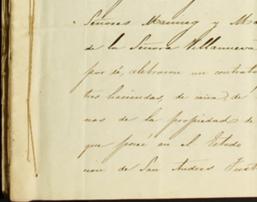 Señores Manning y Ma
de la Señora Villanueva
por sí, celebraron un contrato
tres haciendas, de caña, de
nas de la propiedad de
que posee en el Estado
cion de San Andres Tuxt